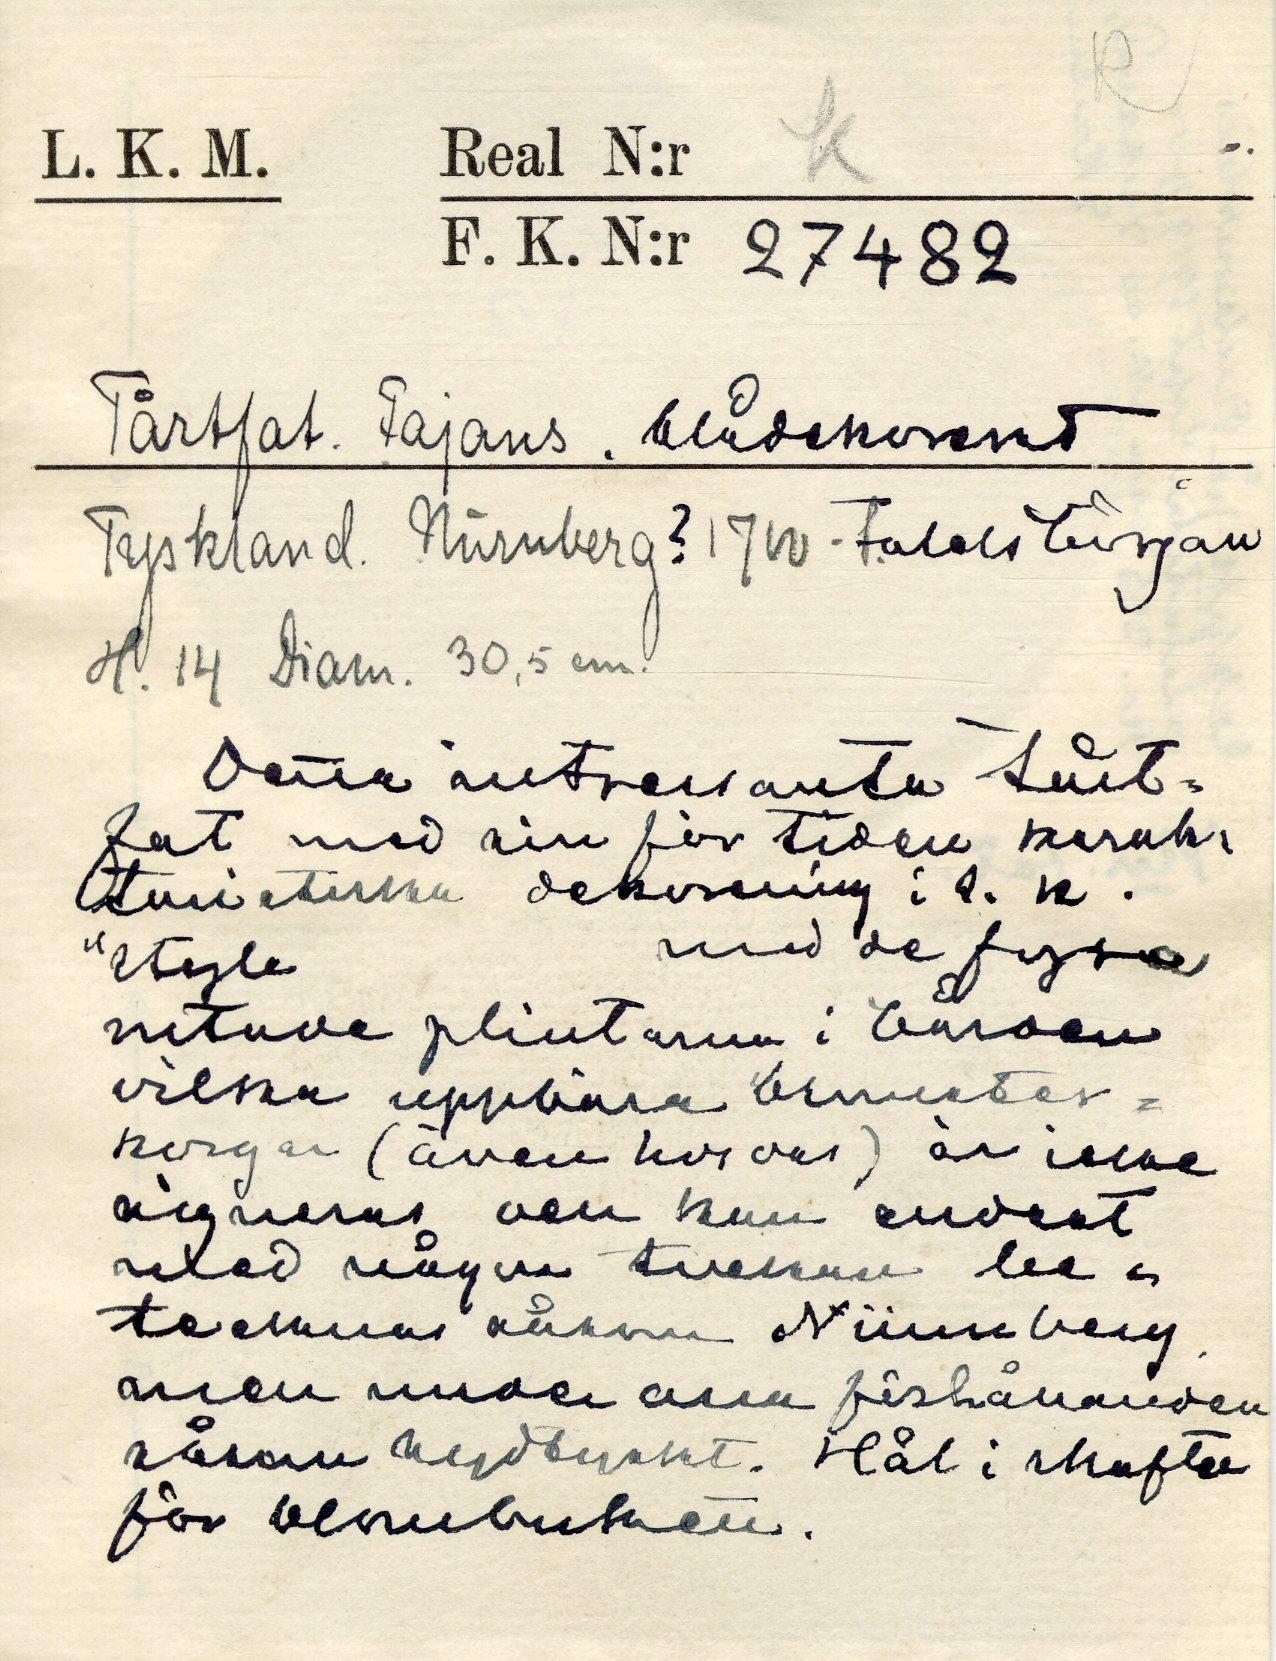 R
L. K. M. Real N:r K
F. K. N:r 27482
Tårtfat. Fajans. blådekorerat
Tyskland. Nürnberg? 1700-talets början
H. 14 Diam. 30,5 cm.
Detta intressanta tårt=
fat med sin för tiden karak=
täristiska dekorering i s. k.
"Style med de fyra
plintarna i bården
vilka uppbära blomster=
korgar (även hos oss) är icke
signerat och kan endast
med någon tvekan be=
tecknas såsom Nürnberg
men under alla förhållanden
såsom sydtyskt. Hål i skaftet
för blombuketten.